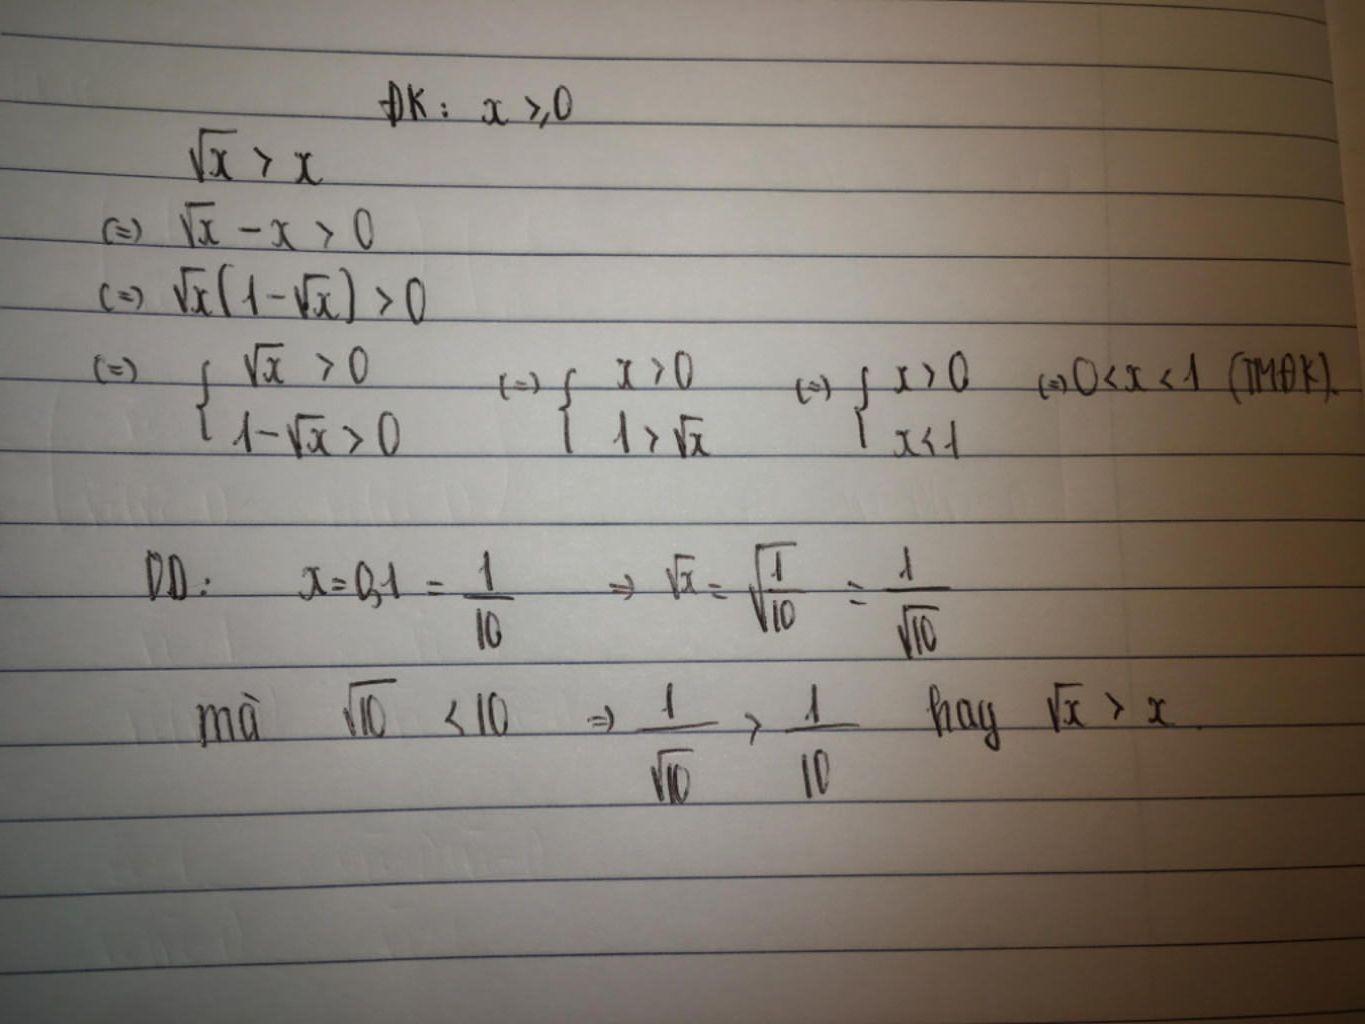 ĐK: x ≥ 0
√x > x
(=) √x - x > 0
(=) √x(1-√x) > 0
(=) { √x > 0 (=) { x > 0 (=) { x > 0 (=) 0 < x < 1 (TMĐK).
1-√x > 0 1 > √x x < 1
DD: x = 0,1 = 1/10 => √x = √(1/10) = 1/√10
mà √10 < 10 => 1/√10 > 1/10 hay √x > x